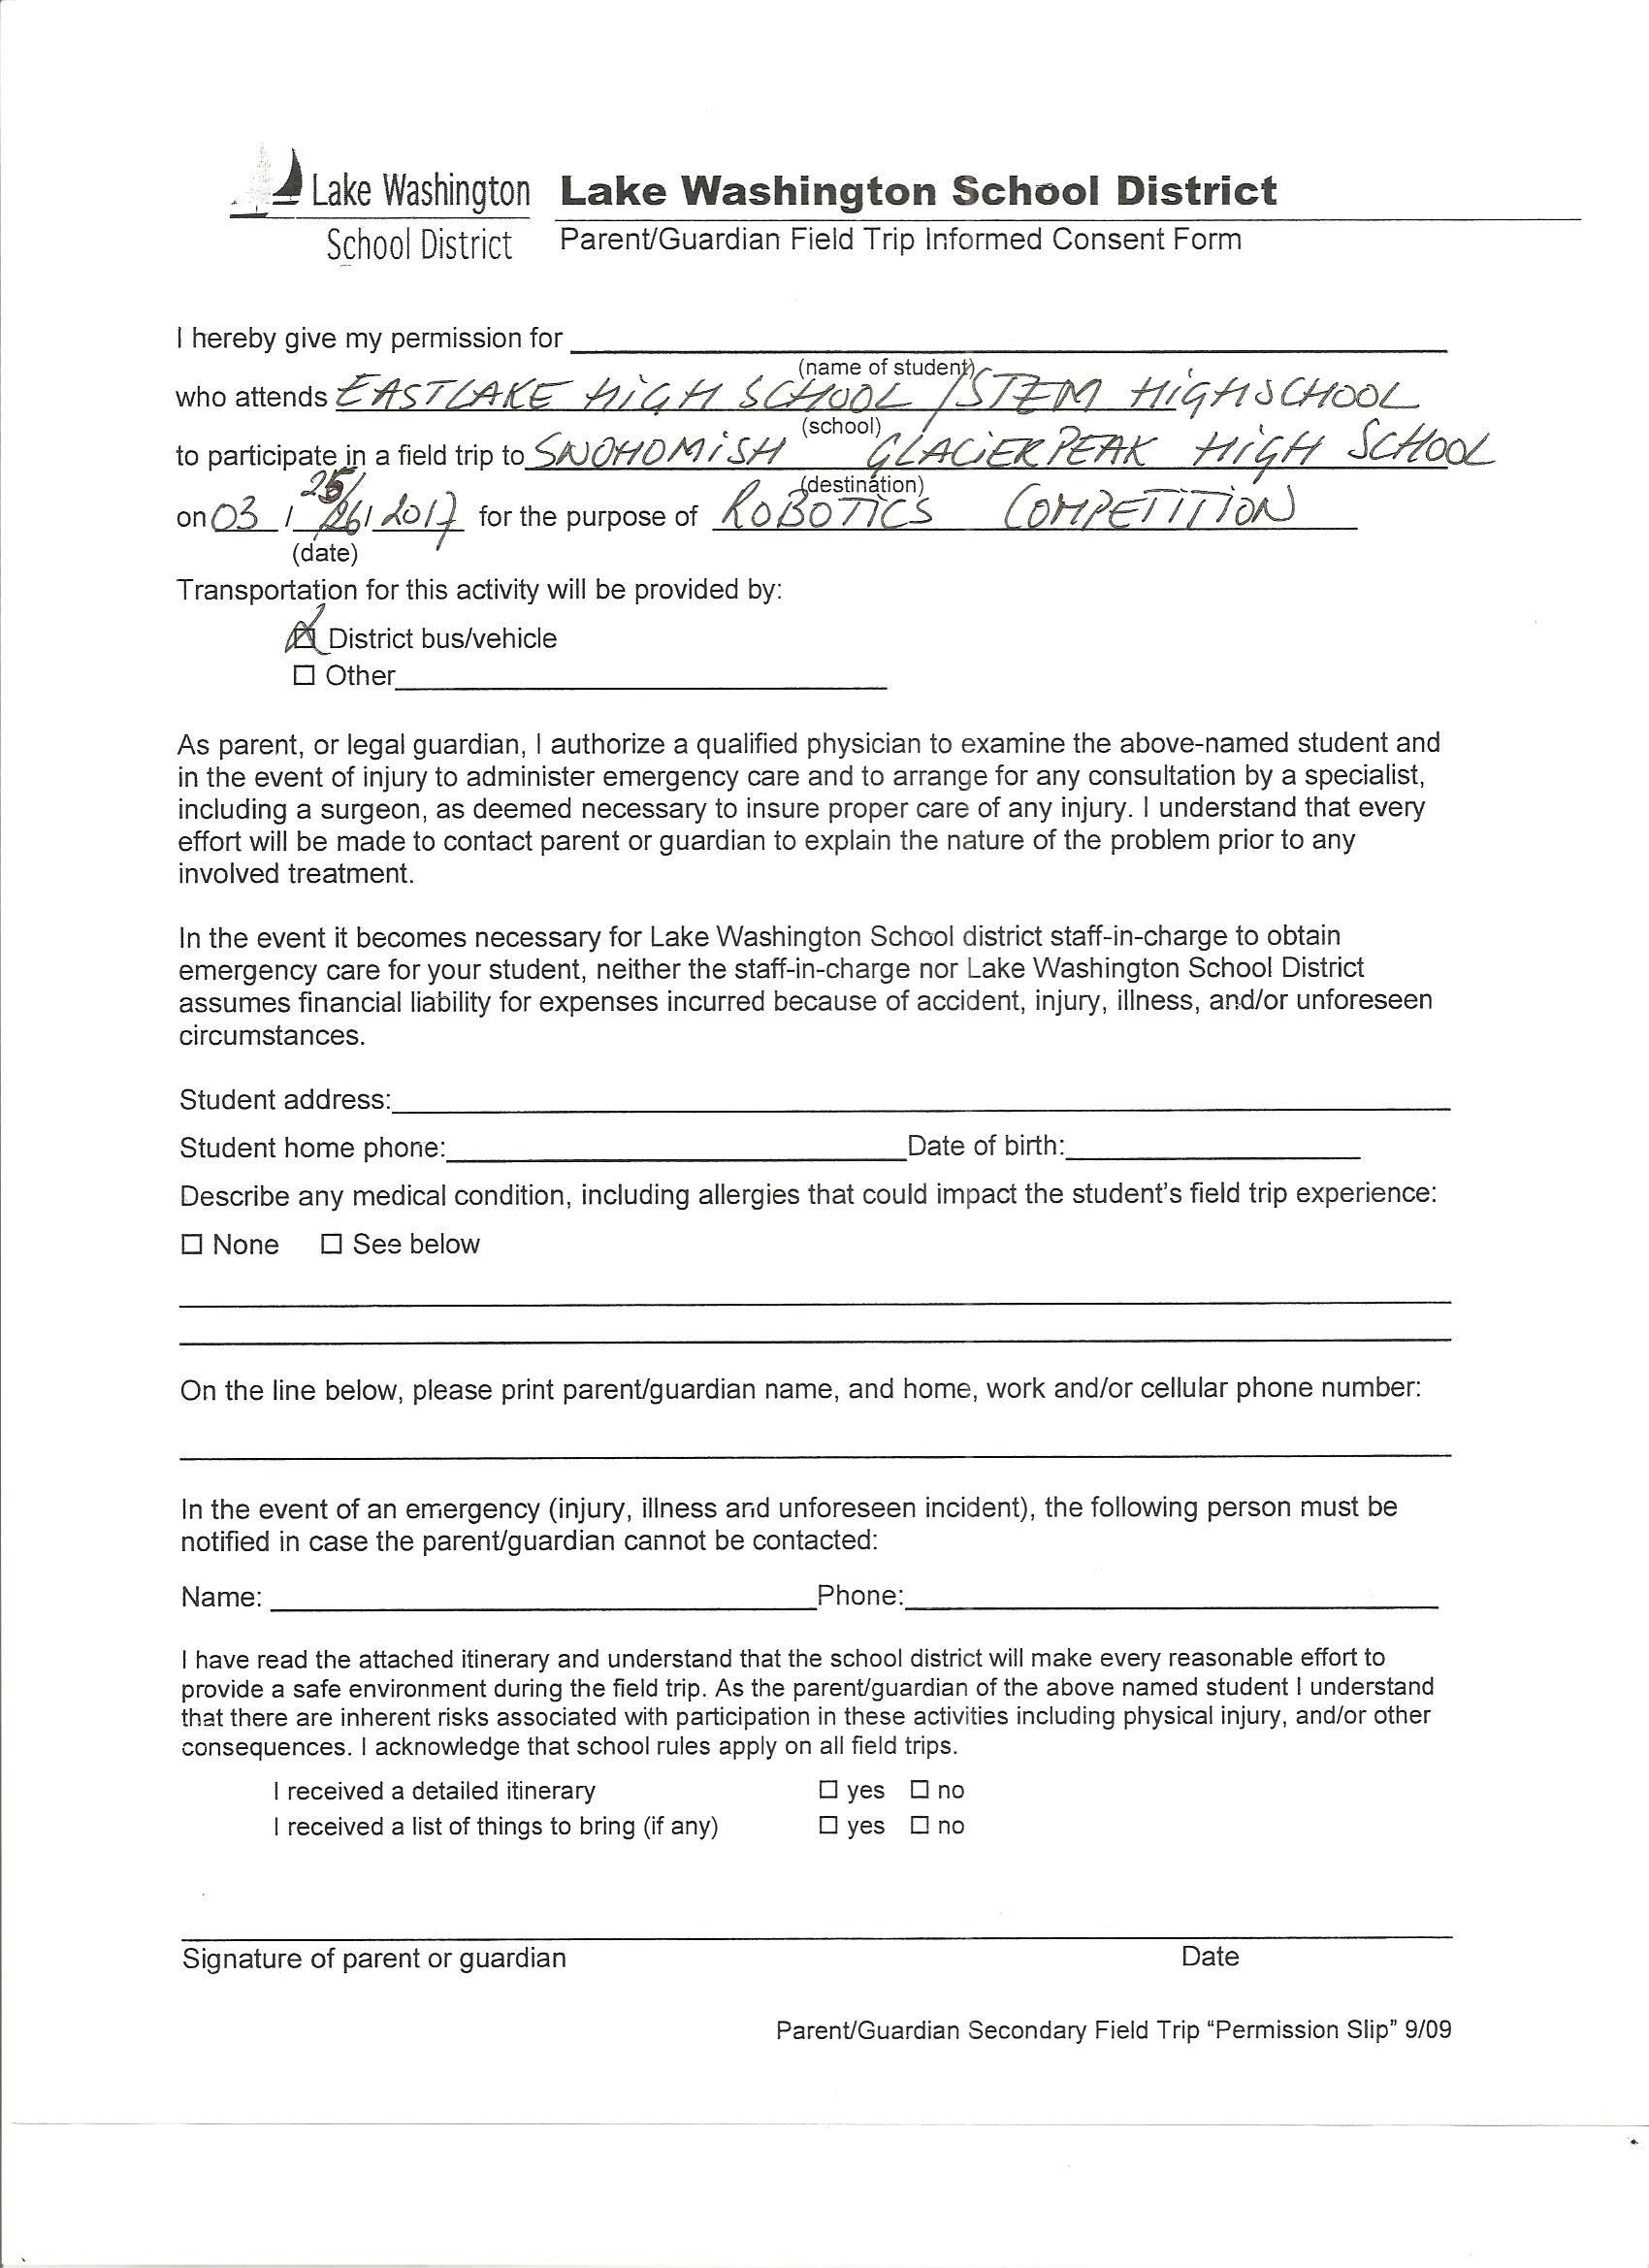 Lake Washington
School District
Lake Washington School District
Parent/Guardian Field Trip Informed Consent Form
I hereby give my permission for
(name of student)
who attends EASTLAKE HIGH SCHOOL / STEM HIGH SCHOOL
(school)
to participate in a field trip to SNOHOMISH GLACIER PEAK HIGH SCHOOL
(destination)
25/
on 03 / 26 / 2017 for the purpose of ROBOTICS COMPETITION
(date)
Transportation for this activity will be provided by:
☒ District bus/vehicle
☐ Other
As parent, or legal guardian, I authorize a qualified physician to examine the above-named student and
in the event of injury to administer emergency care and to arrange for any consultation by a specialist,
including a surgeon, as deemed necessary to insure proper care of any injury. I understand that every
effort will be made to contact parent or guardian to explain the nature of the problem prior to any
involved treatment.
In the event it becomes necessary for Lake Washington School district staff-in-charge to obtain
emergency care for your student, neither the staff-in-charge nor Lake Washington School District
assumes financial liability for expenses incurred because of accident, injury, illness, and/or unforeseen
circumstances.
Student address:
Student home phone: Date of birth:
Describe any medical condition, including allergies that could impact the student's field trip experience:
☐ None ☐ See below
On the line below, please print parent/guardian name, and home, work and/or cellular phone number:
In the event of an emergency (injury, illness and unforeseen incident), the following person must be
notified in case the parent/guardian cannot be contacted:
Name: Phone:
I have read the attached itinerary and understand that the school district will make every reasonable effort to
provide a safe environment during the field trip. As the parent/guardian of the above named student I understand
that there are inherent risks associated with participation in these activities including physical injury, and/or other
consequences. I acknowledge that school rules apply on all field trips.
I received a detailed itinerary ☐ yes ☐ no
I received a list of things to bring (if any) ☐ yes ☐ no
Signature of parent or guardian Date
Parent/Guardian Secondary Field Trip “Permission Slip” 9/09